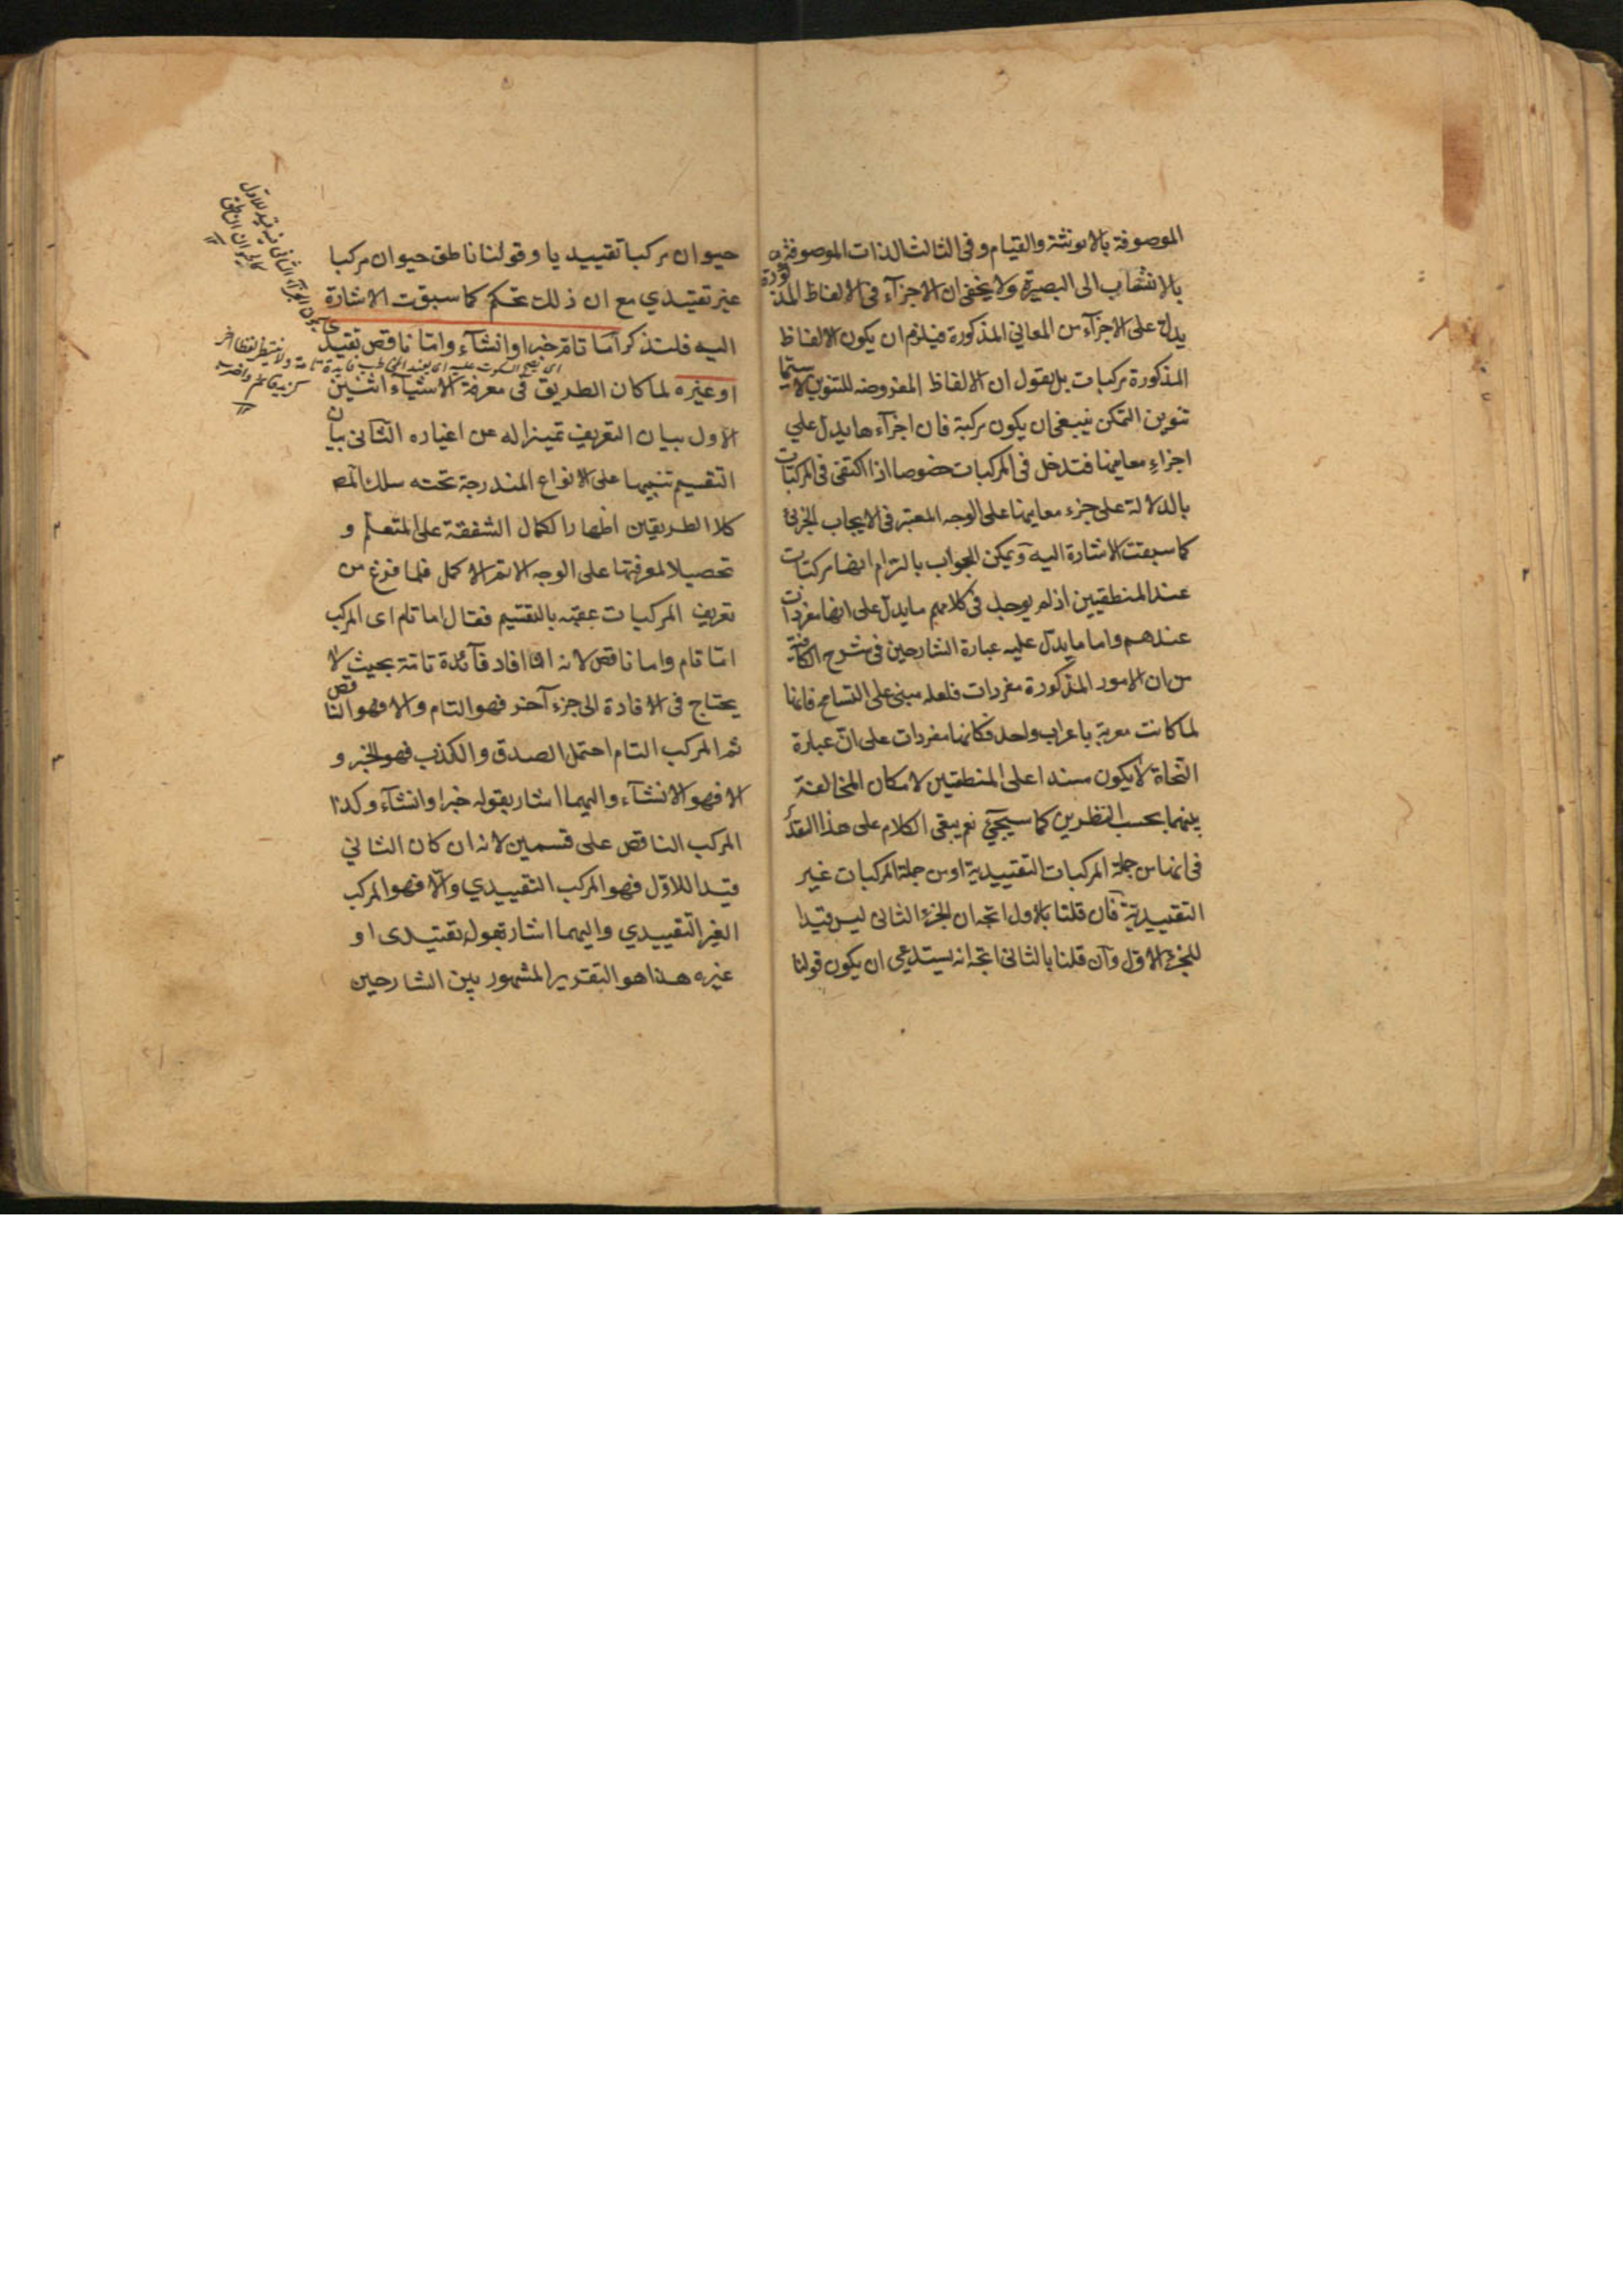 الموصوفة بالانوثثة والقيام وفى الثالث الذات الموصوفة
بالانتساب الى البصرة ولا يخفى ان الاجزآء فى الالفاظ المذكورة
يدل على الاجزآء من المعاني المذكورة فيلزم ان يكون الالفاظ
المذكورة مركبات بل يقول ان الالفاظ المفروضه للتنوين لا سيّما
تنوين التمكن ينبغى ان يكون مركبة فان اجزآءها يدل علي
اجزاء معانيها فتدخل فى المركبات خصوصا اذا اكتفى فى المركبات
بالدلالة على جزء معانيها على الوجه المعتبر فى الايجاب الجزئ
كما سبقت الاشارة اليه ويمكن الجواب بالتزام انها مركبات
عند المنطقيين اذ لم يوجد فى كلامهم ما يدل على انها مفردات
عندهم واما ما يدل عليه عبارة الشارحين فى شرح الكافية
من ان الامور المذكورة مفردات فلعله مبنى على التسامح فانها
لما كانت معربة باعراب واحد فكانها مفردات على انّ عبارة
النحاة لا يكون مسندا على المنطقيين لامكان المخالفة
بينهما بحسب النظرين كما سيجئ نعم يبقى الكلام على هذا التقدير
فى انها من جملة المركبات التقييدية او من جملة المركبات غير
التقييدية فان قلنا بالاول اتجه ان الجزء الثانى ليس قيدا
للجزء الاول وان قلنا بالثانى اتجه انه يستدعى ان يكون قولنا
حيوان مركبا تقييديا وقولنا ناطق حيوان مركبا
غير تقييدي مع ان ذلك تحكم كما سبقت الاشارة
اليه فلتذكر امّا تام خبر او انشآء وامّا ناقص تقييدى
اى يصح السكوت عليه اى يفيد المخاطب فايدة تامة ولا ينتظر لفظا اخر
كزيد قائم واضرب
يكون الجزء الثانى قيد للاول
كالحيوان الناطق
او غيره لما كان الطريق فى معرفة الاشيآء اثنين
الاول بيان التعريف تميزا له عن اغياره الثانى بيان
التقسيم تنبيها على الانواع المندرجة تحته سلك المص
كلا الطريقين اظهارا لكمال الشفقة على المتعلم و
تحصيلا لمعرفتها على الوجه الاتم الاكمل فلما فرغ من
تعريف المركبات عقبه بالتقسيم فقال اما تام اى المركب
امّا تام واما ناقص لانه افاد فآئدة تامّة بحيث لا
يحتاج فى الافادة الى جزء آخر فهو التام والا فهو الناقص
ثم المركب التام احتمل الصدق والكذب فهو الخبر و
الا فهو الانشآء واليهما اشار بقوله خبر او انشآء وكذا
المركب الناقص على قسمين لانه ان كان الثاني
قيدا للاوّل فهو المركب التقييدي والّا فهو المركب
الغير التقييدي واليهما اشار بقوله تقييدى او
غيره هذا هو التقرير المشهور بين الشارحين